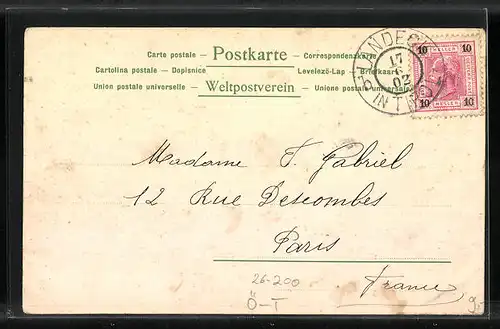 Carte postale — Postkarte — Correspondenzkarte
Cartolina postale — Dopisnice — Levelező-Lap — Briefkaart
Union postale universelle — Weltpostverein — Unione postale universale
LANDECK
17
02
IN TIROL
10 10
10 HELLER HELLER 10
Madame F. Gabriel
12 Rue Descombes
Paris
France
26-200
Ö-T
9.-